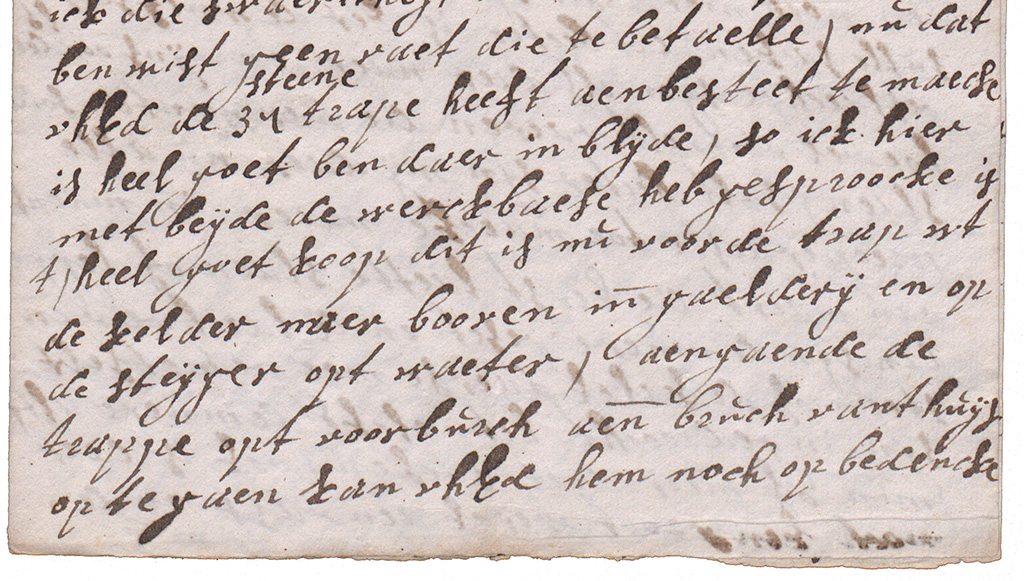 ick die
ben mist geen raet die te betaelle, nu dat
steene
vhEd de 34 trape heeft aenbesteet te maecke
is heel goet ben daer in blyde, so ick hier
met beyde de werckbaese heb gesproocke is
t, heel goet koop dit is nu voor de trap wt
de kelder naer booven inn gaeldery en op
de steyger opt waeter, aengaende de
trappe opt voorburch aenn bruch vant huys
op te gaen kan vhEd hem noch op bedencke